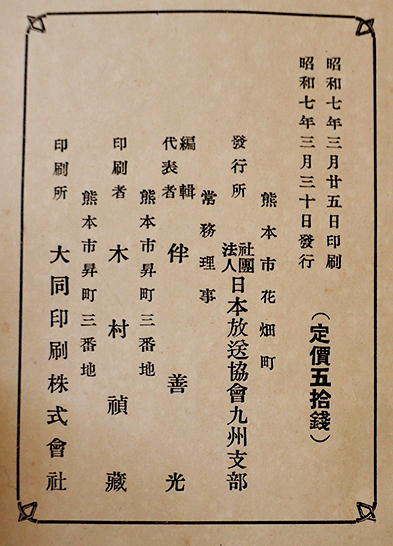 昭和七年三月廿五日印刷
昭和七年三月三十日發行
（定價五拾錢）
熊本市花畑町
發行所 社團法人日本放送協會九州支部
常務理事
編輯代表者 伴善光
熊本市昇町三番地
印刷者 木村禎藏
熊本市昇町三番地
印刷所 大同印刷株式會社